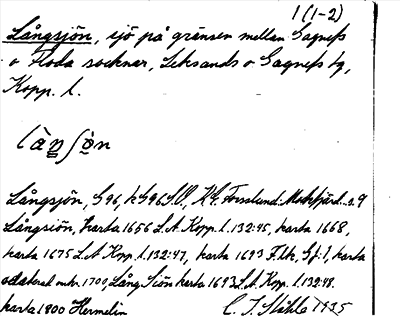 1 (1-2)
Långsjön, sjö på gränsen mellan Gagnefs
o Floda socknar, Leksands o Gagnefs tg,
Kopp. l.
làŋʃòn
Långsjön, G96, k G96 S.O., K.G. Forsslund: s. 9
Långsiön, karta 1656 L.A. Kopp. l. 132:45, karta 1668,
karta 1675 L.A. Kopp. l. 132:47, karta 1693 karta
odaterad omkr. 1700, Lång Siön karta 1693 L.A. Kopp. l. 132:48.
karta 1800 Hermelin
C. I. Ståhle 1935